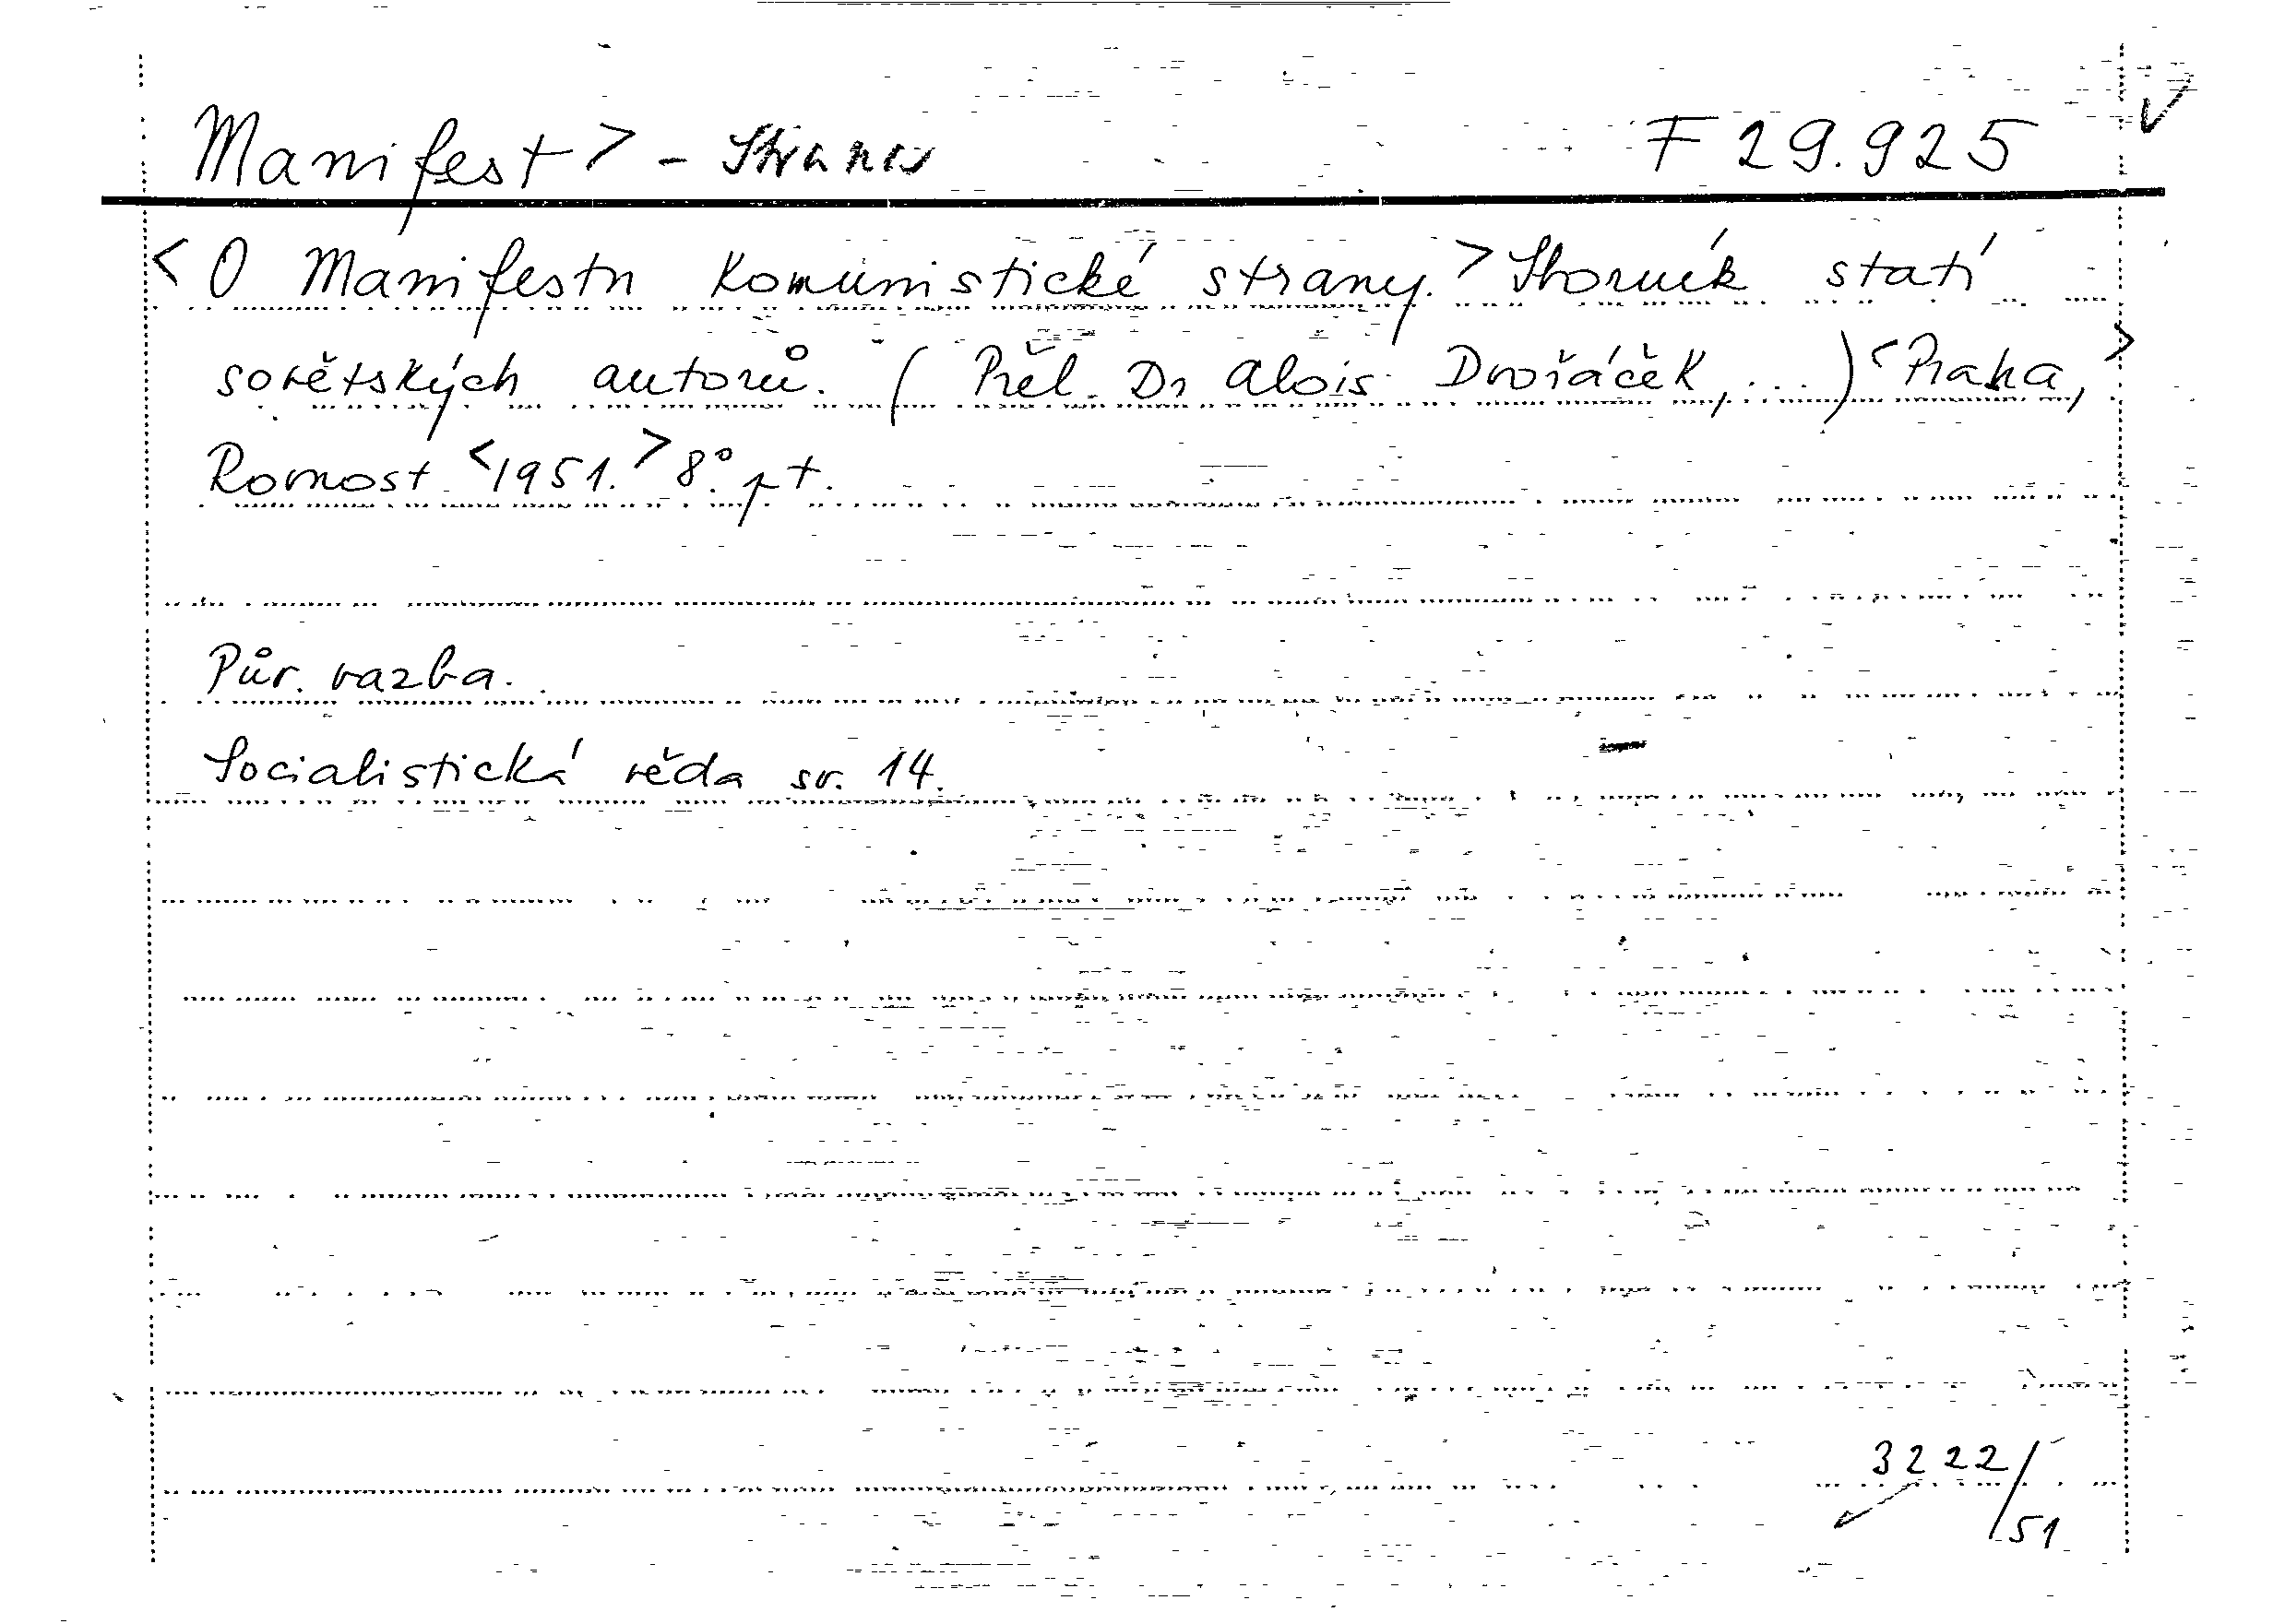 Manifest> - Strana F 29.925 V
<O Manifestu Komunistické strany.> Sborník statí
sovětských autorů. (Přel. Dr Alois Dvořáček,...) <Praha,>
Rovnost <1951.> 8°. pt.
Pův. vazba.
Socialistická věda sv. 14.
3222/51